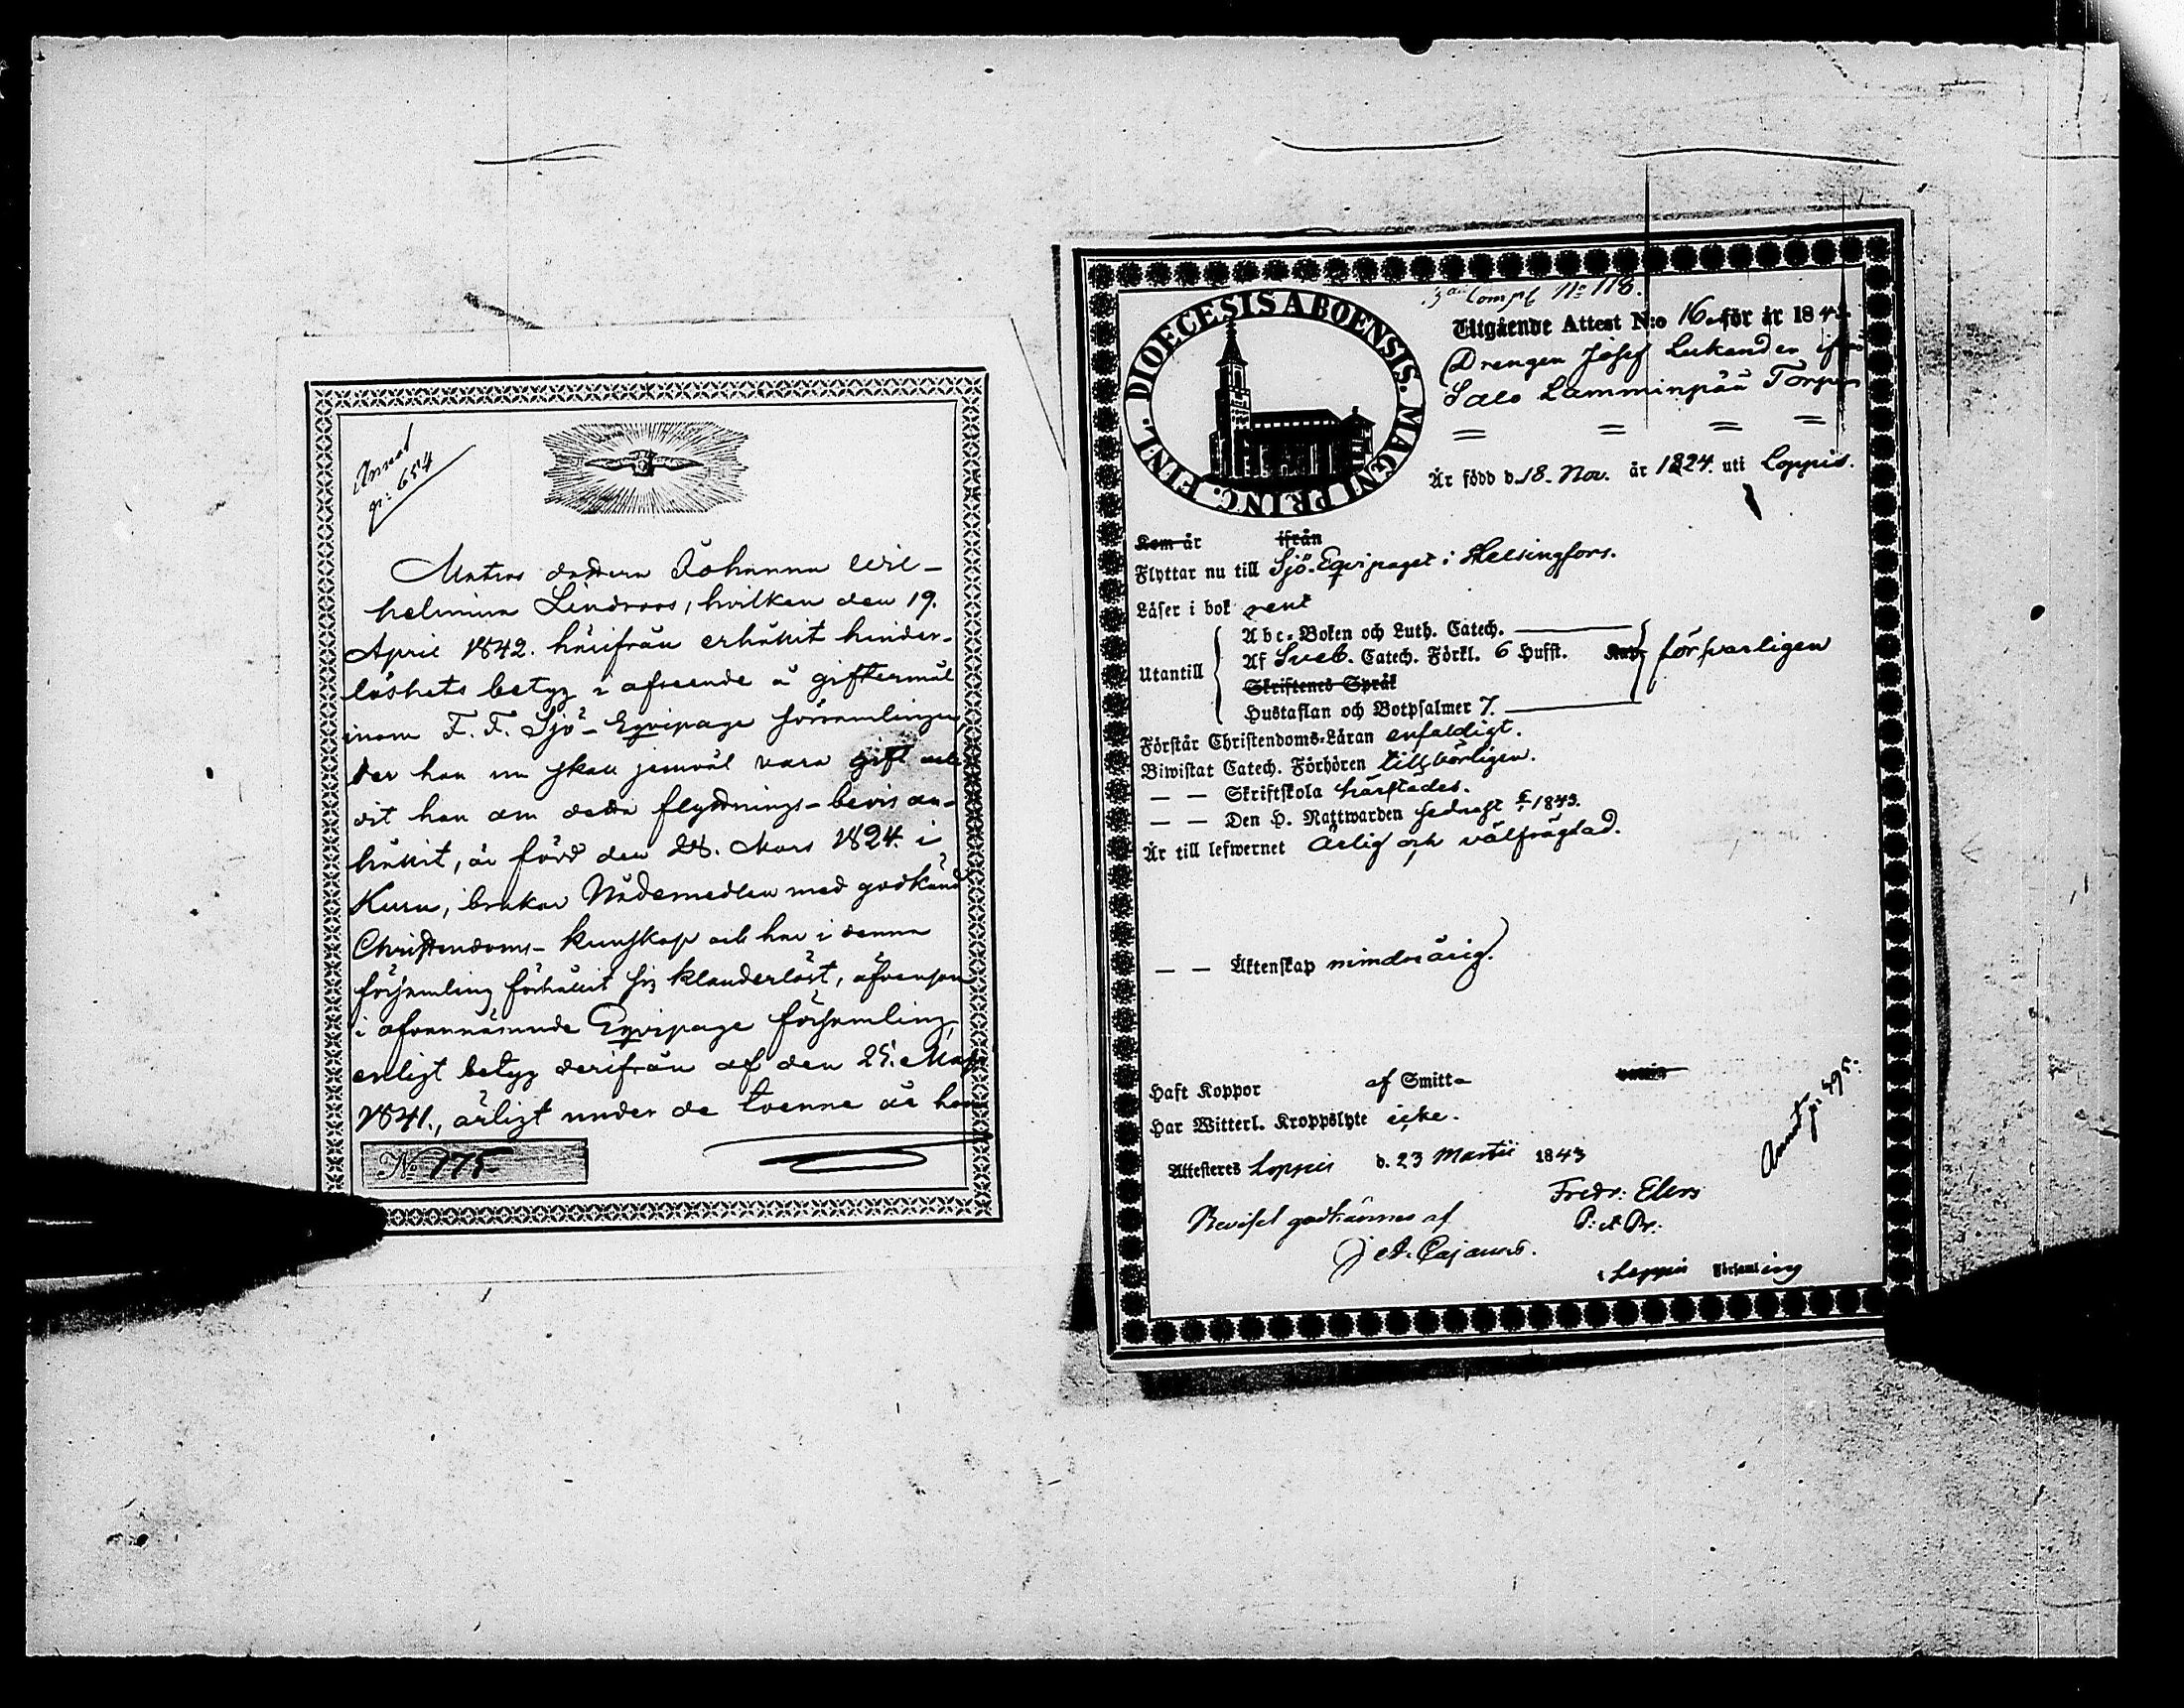 Annot
p: 654
Matros dottern Johanna Wil-
helmina Lindroos, hvilken den 19.
April 1842. härifrån erhållit hinder-
löshets betyg i afseende å giftermål
inom F. F. Sjö-Eqvipage församlingen,
der hon nu skall jemväl vara gift och
dit hon om detta flyttnings-bevis an-
hållit, är född den 28. Mars 1824. i
Kuru, brukar Nådemedlen med godkänd
Christendoms-kunskap och har i denna
församling förhållit sig klanderlöst, äfvensom
i ofvannämnde Eqvipage församling,
enligt betyg derifrån af den 25. Maji
1841., ärligt under de tvenne år hon
No 175
DIOECESIS ABOENSIS. MAGNI PRINC. FINL.
Compt No 118.
Utgående Attest N:o 16. för år 1843
Drengen Josef Lukander ifrån
Salo Lamminpää Torp
Är född d. 18. Nov. år 1824. uti Loppis.
Kom år ifrån
Flyttar nu till Sjö-Eqvipaget i Helsingfors.
Läser i bok rent
Utantill
Abc-Boken och Luth. Catech.
Af Sveb. Catech. Förkl. 6 Hufst. försvarligen
Skriftenes Språk
Hustaflan och Botpsalmer 7.
Förstår Christendoms-Läran enfaldigt.
Biwistat Catech. Förhören tillbörligen.
— — Skriftskola härstädes.
— — Den H. Nattwarden sednast 1843.
Är till lefwernet ärlig och välfrägdad.
— — Äktenskap minderårig.
Haft Koppor af Smitta
Har Witterl. Kroppslyte icke.
Annot p: 495.
Attesteras Loppis d. 23 Martii 1843
Fredr: Elers
P: et Pr:
Beviset godkännes af
J. A. Cajanus.
i Loppis Församling